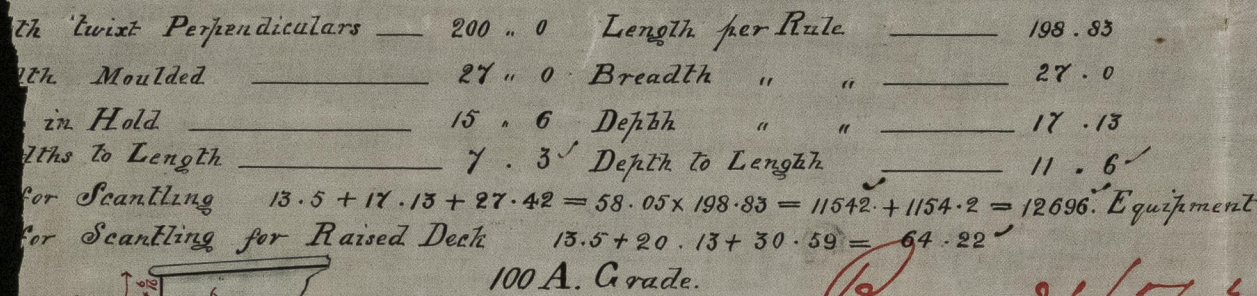 th 'twixt Perpendiculars — 200 " 0 Length per Rule — 198.83
dth Moulded — 27 " 0 Breadth " " — 27.0
in Hold — 15 " 6 Depth " " — 17.13
dths to Length — 7.3 ✓ Depth to Length — 11.6 ✓
for Scantling 13.5 + 17.13 + 27.42 = 58.05 x 198.83 = 11542. + 1154.2 = 12696. Equipment
for Scantling for Raised Deck 13.5 + 20.13 + 30.59 = 64.22
100 A. Grade.